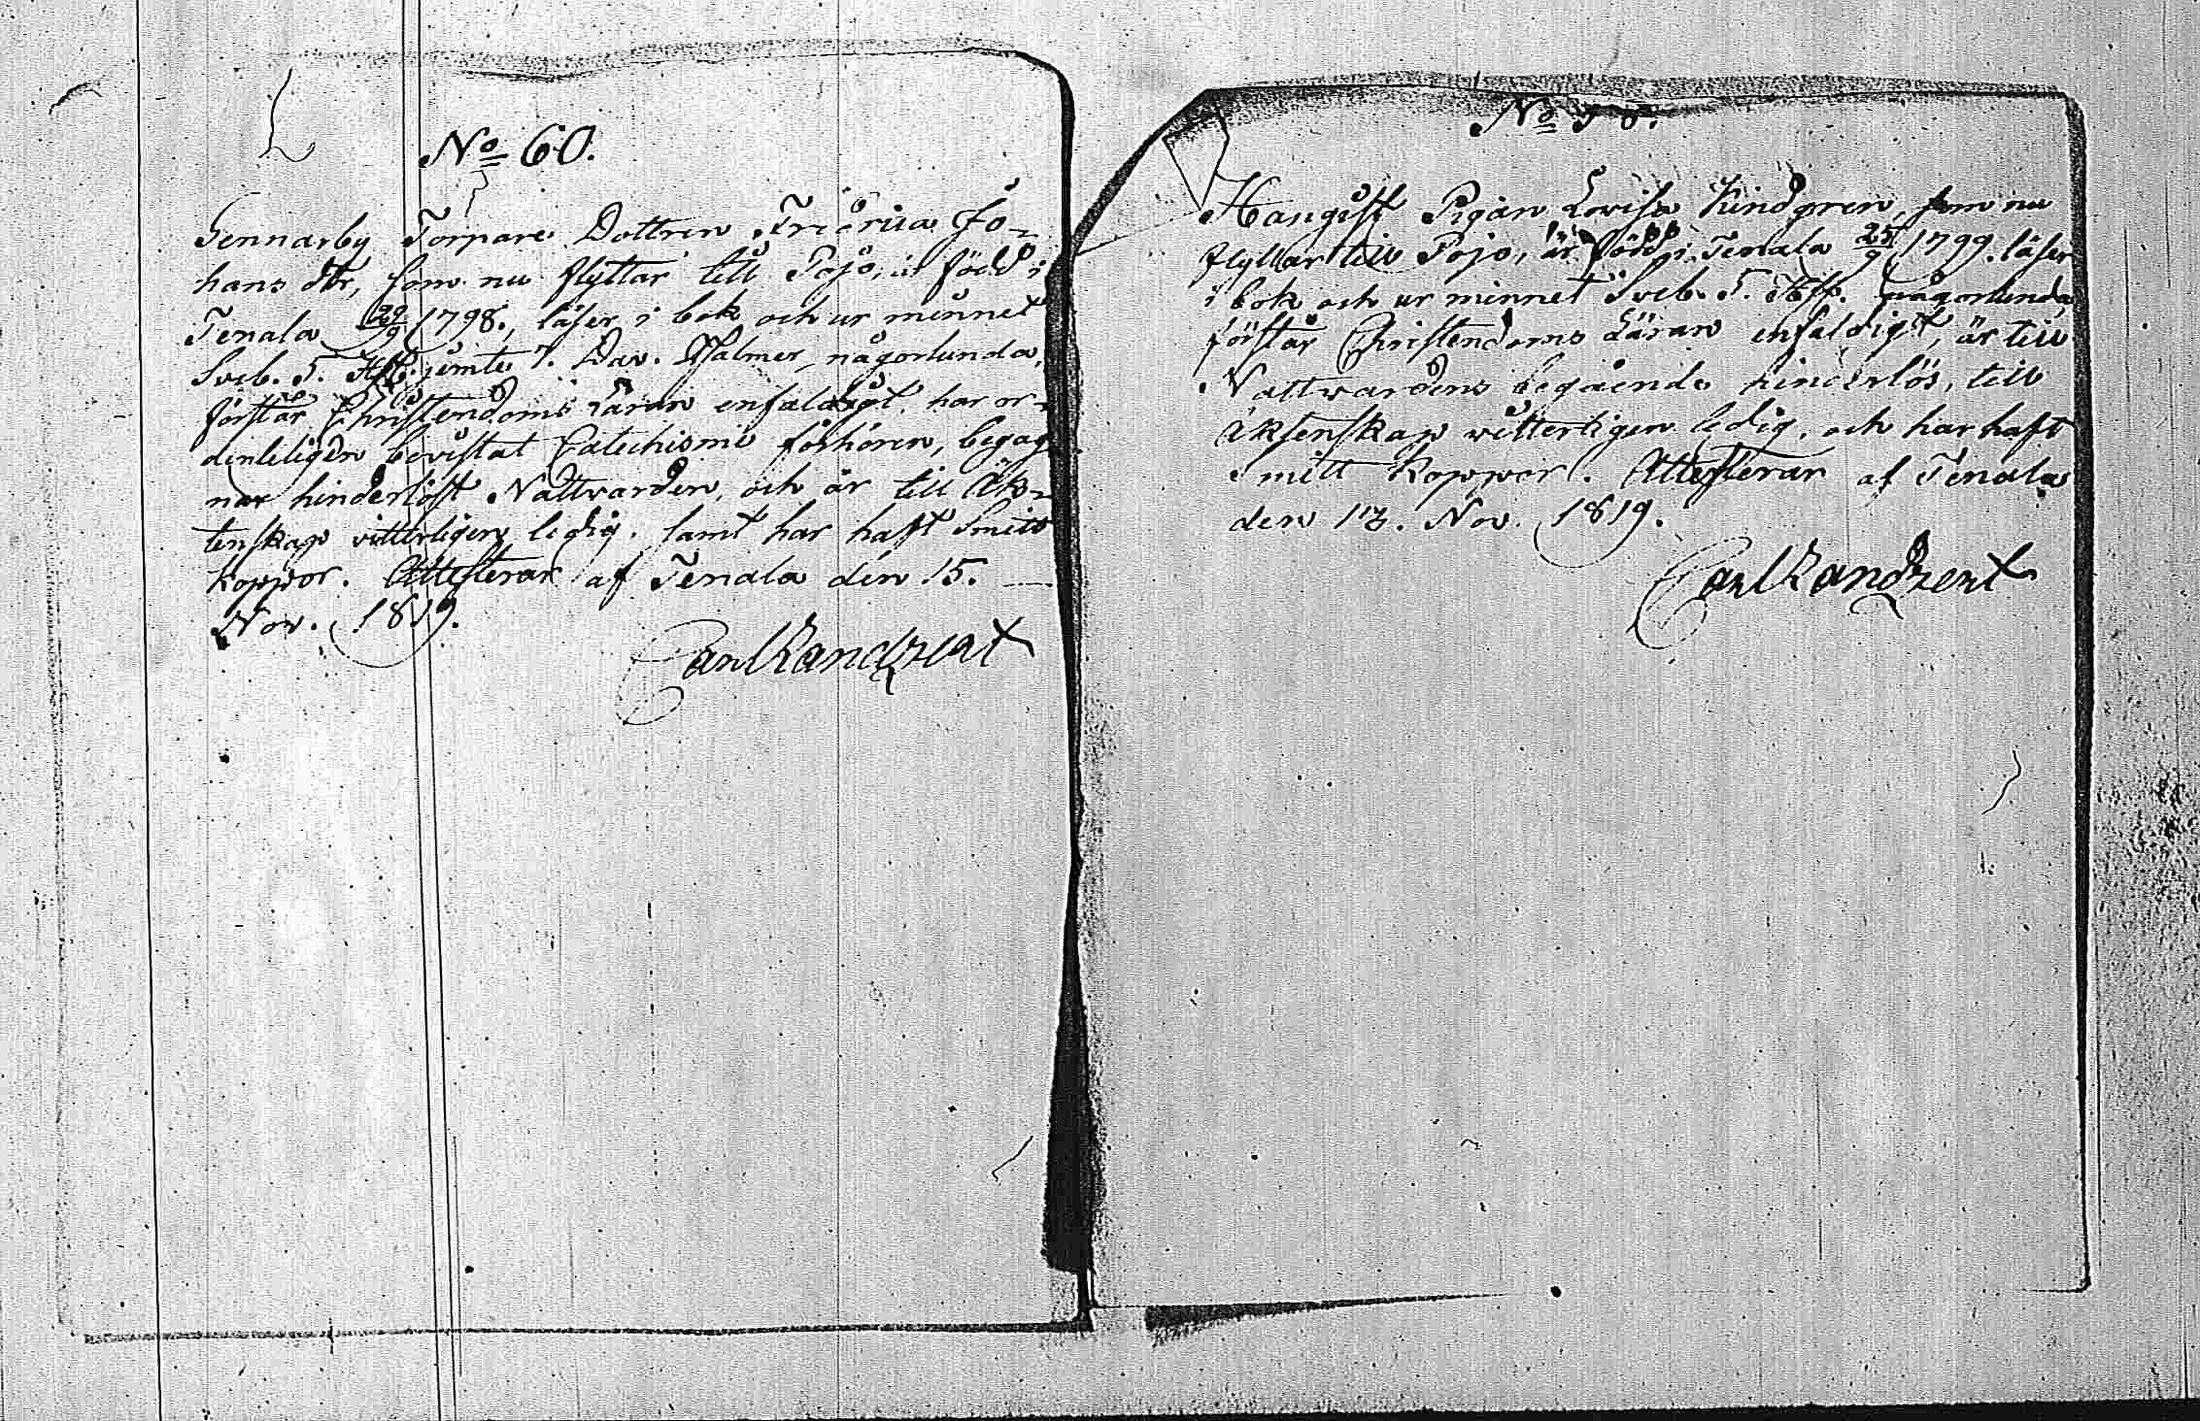 No 60.
Gennarby Torpare Dottren Fredrica Jo=
hans dtr, som nu flyttar till Pojo, är född i
Tenala 29/9 1798., läser i bok och ur minnet
Sveb. T. Hfl. jemte 7. Dav. Psalmer, någorlunda,
förstår Christendoms Läran enfaldigt, har or=
denteligen bevistat Catechismi förhören, begag=
nar hinderlöst Nattvarden, och är till Äk=
tenskap vitterligen ledig. samt har haft Smitt
koppor. Attesterar af Tenala den 15.
Nov. 1819.
Carl
No
Pigan Lovisa Lindgren, som nu
flyttar till Pojo, är född i Tenala 25/9 1799. läser
i bok och ur minnet Sveb. T. Hfl. någorlunda,
förstår Christendoms Läran enfaldigt, är till
Nattwardens begående hinderlös, till
Äktenskap witterligen ledig, och har haft
Smitt koppor. Attesterar af Tenala
den Nov. 1819.
Carl